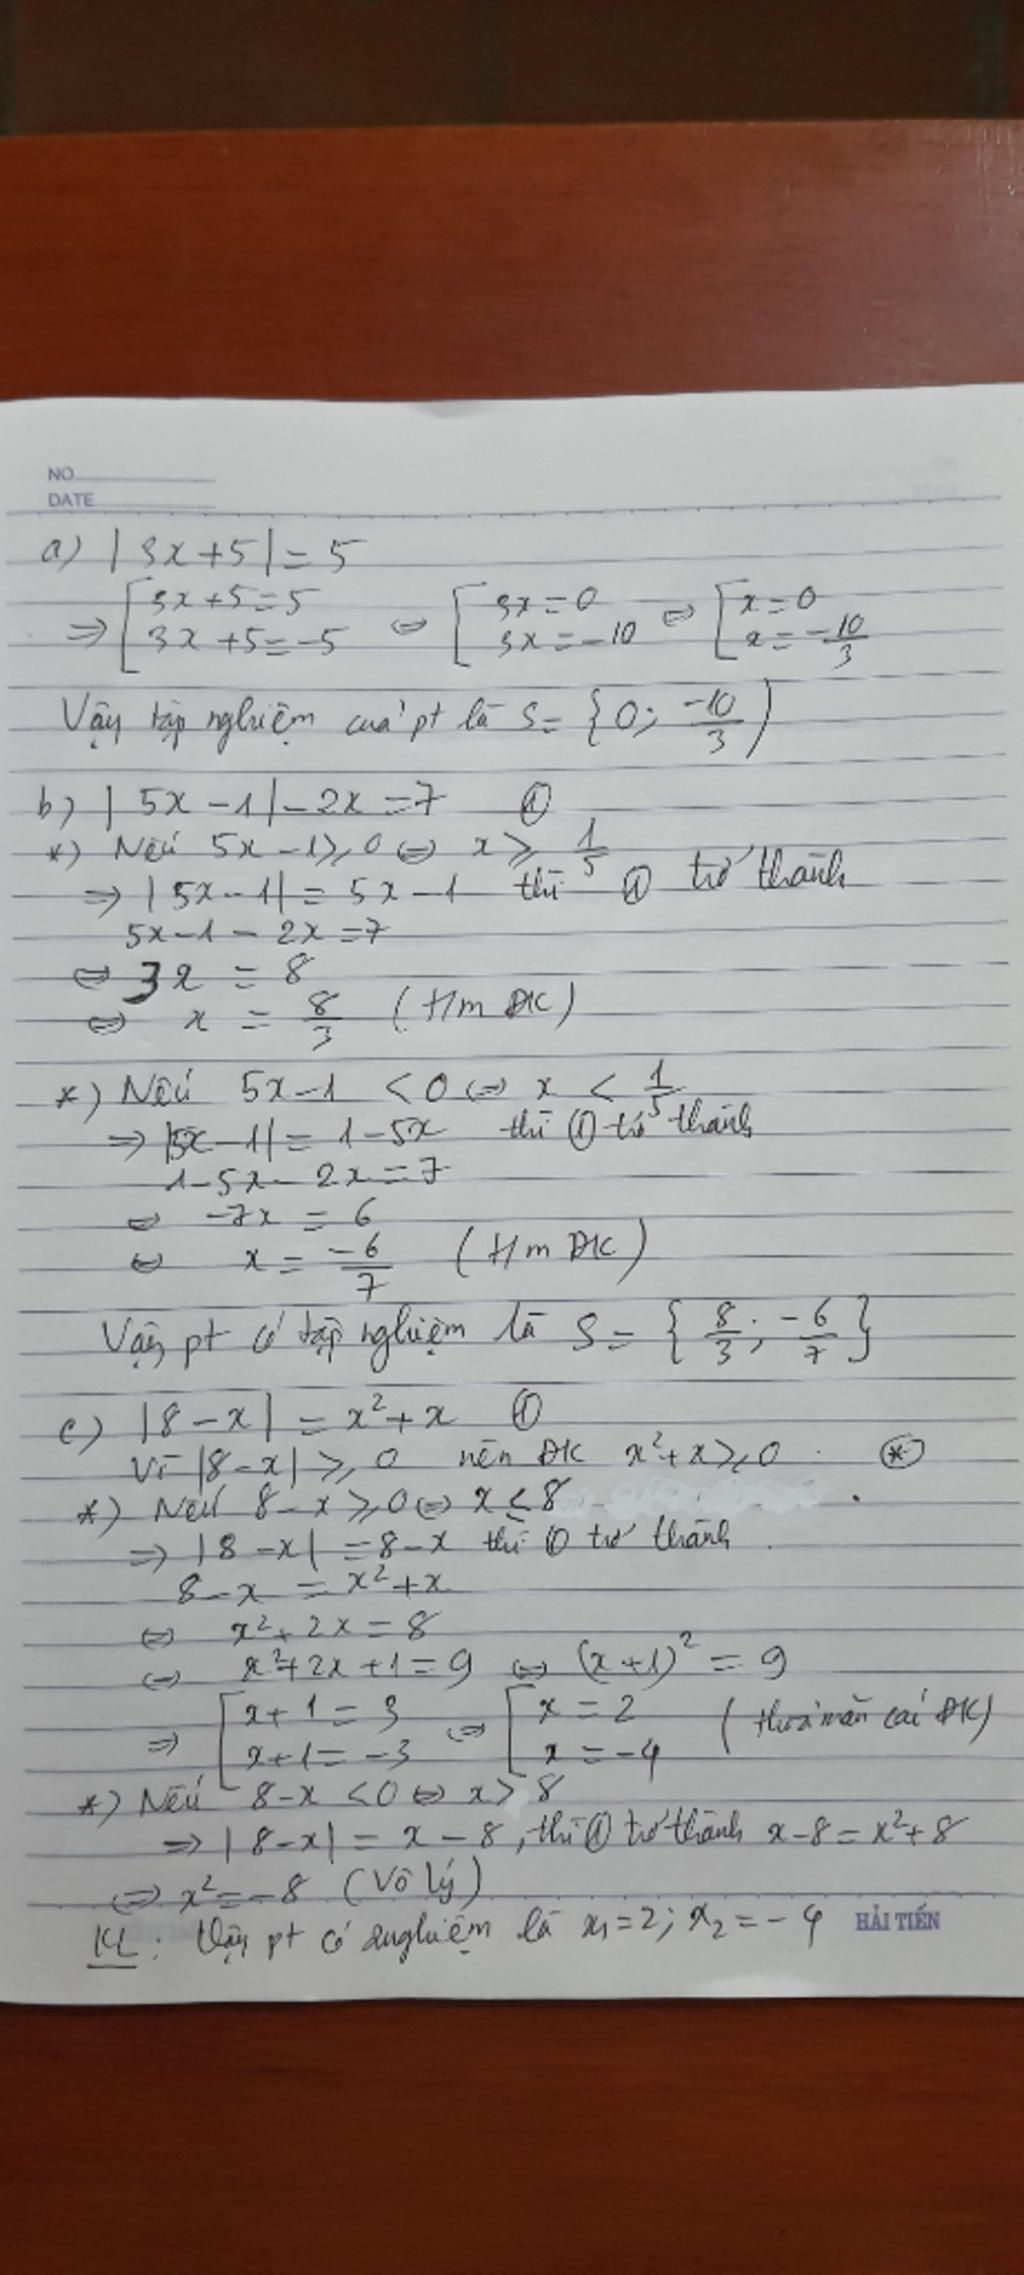 NO
DATE
a) |3x+5| = 5
⇒ [ 3x+5=5 ⇔ [ 3x=0 ⇔ [ x=0
3x+5=-5 3x=-10 x=-10/3
Vậy tập nghiệm của pt là S= {0; -10/3)
b) |5x-1|-2x=7 ①
*) Nếu 5x-1≥0 ⇔ x ≥ 1/5
⇒ |5x-1| = 5x-1 thì ① trở thành
5x-1-2x=7
⇔ 3x = 8
⇔ x = 8/3 (t/m ĐK)
*) Nếu 5x-1 <0 ⇔ x < 1/5
⇒ |5x-1| = 1-5x thì ① trở thành
1-5x-2x=7
⇔ -7x = 6
⇔ x = -6/7 (t/m ĐK)
Vậy pt có tập nghiệm là S= {8/3; -6/7}
c) |8-x| = x²+x ①
Vì |8-x| ≥ 0 nên ĐK x²+x≥0. (*)
*) Nếu 8-x≥0 ⇔ x≤8
⇒ |8-x| =8-x thì ① trở thành
8-x = x²+x
⇔ x²+2x=8
⇔ x²+2x+1=9 ⇔ (x+1)² = 9
⇒ [ x+1=3 ⇔ [ x=2 (thoả mãn cả ĐK)
x+1=-3 x=-4
*) Nếu 8-x <0 ⇔ x>8
⇒ |8-x| = x-8, thì ① trở thành x-8=x²+8
⇔ x²=-8 (Vô lý)
KL: Vậy pt có 2 nghiệm là x₁=2; x₂=-4 HẢI TIẾN